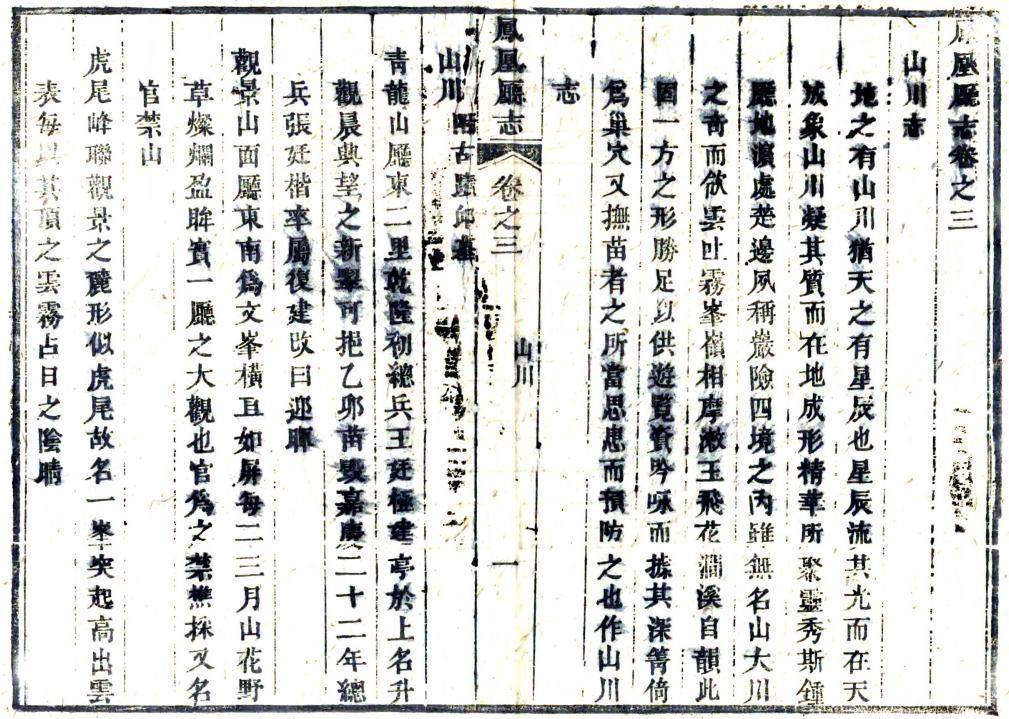 鳳凰廳志卷之三
山川志
地之有山川猶天之有星辰也星辰流其光而在天
成象山川凝其質而在地成形精華所聚靈秀斯鍾
廳地濱處楚邊夙稱巖險四境之內雖無名山大川
之奇而欱雲吐霧峯嶺相摩漱玉飛花澗溪自韻此
固一方之形勝足以供遊覽資吟咏而據其深箐倚
爲巢穴又撫苗者之所當思患而預防之也作山川
志
鳳凰廳志
卷之三
山川
一
山川 附古蹟邱墓
靑龍山廳東二里乾隆初總兵王廷極建亭於上名升
觀晨興望之新翠可挹乙卯苗燬嘉慶二十二年總
兵張廷楷率屬復建改曰迎暉
觀景山面廳東南爲文峯橫亘如屏每二三月山花野
草燦爛盈眸實一廳之大觀也官爲之禁樵採又名
官禁山
虎尾峰聯觀景之麓形似虎尾故名一峯突起高出雲
表每以其頂之雲霧占日之陰晴